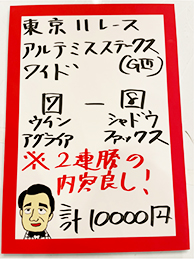 東京11レース
アルテミスステークス
ワイド (GⅢ)
7 — 8
ウイン シャドウ
アグライア ファックス
※2連勝の
内容良し!
計10000円